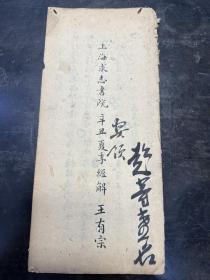 超等壹名
安候
上海求志書院辛丑夏季經解 王有宗